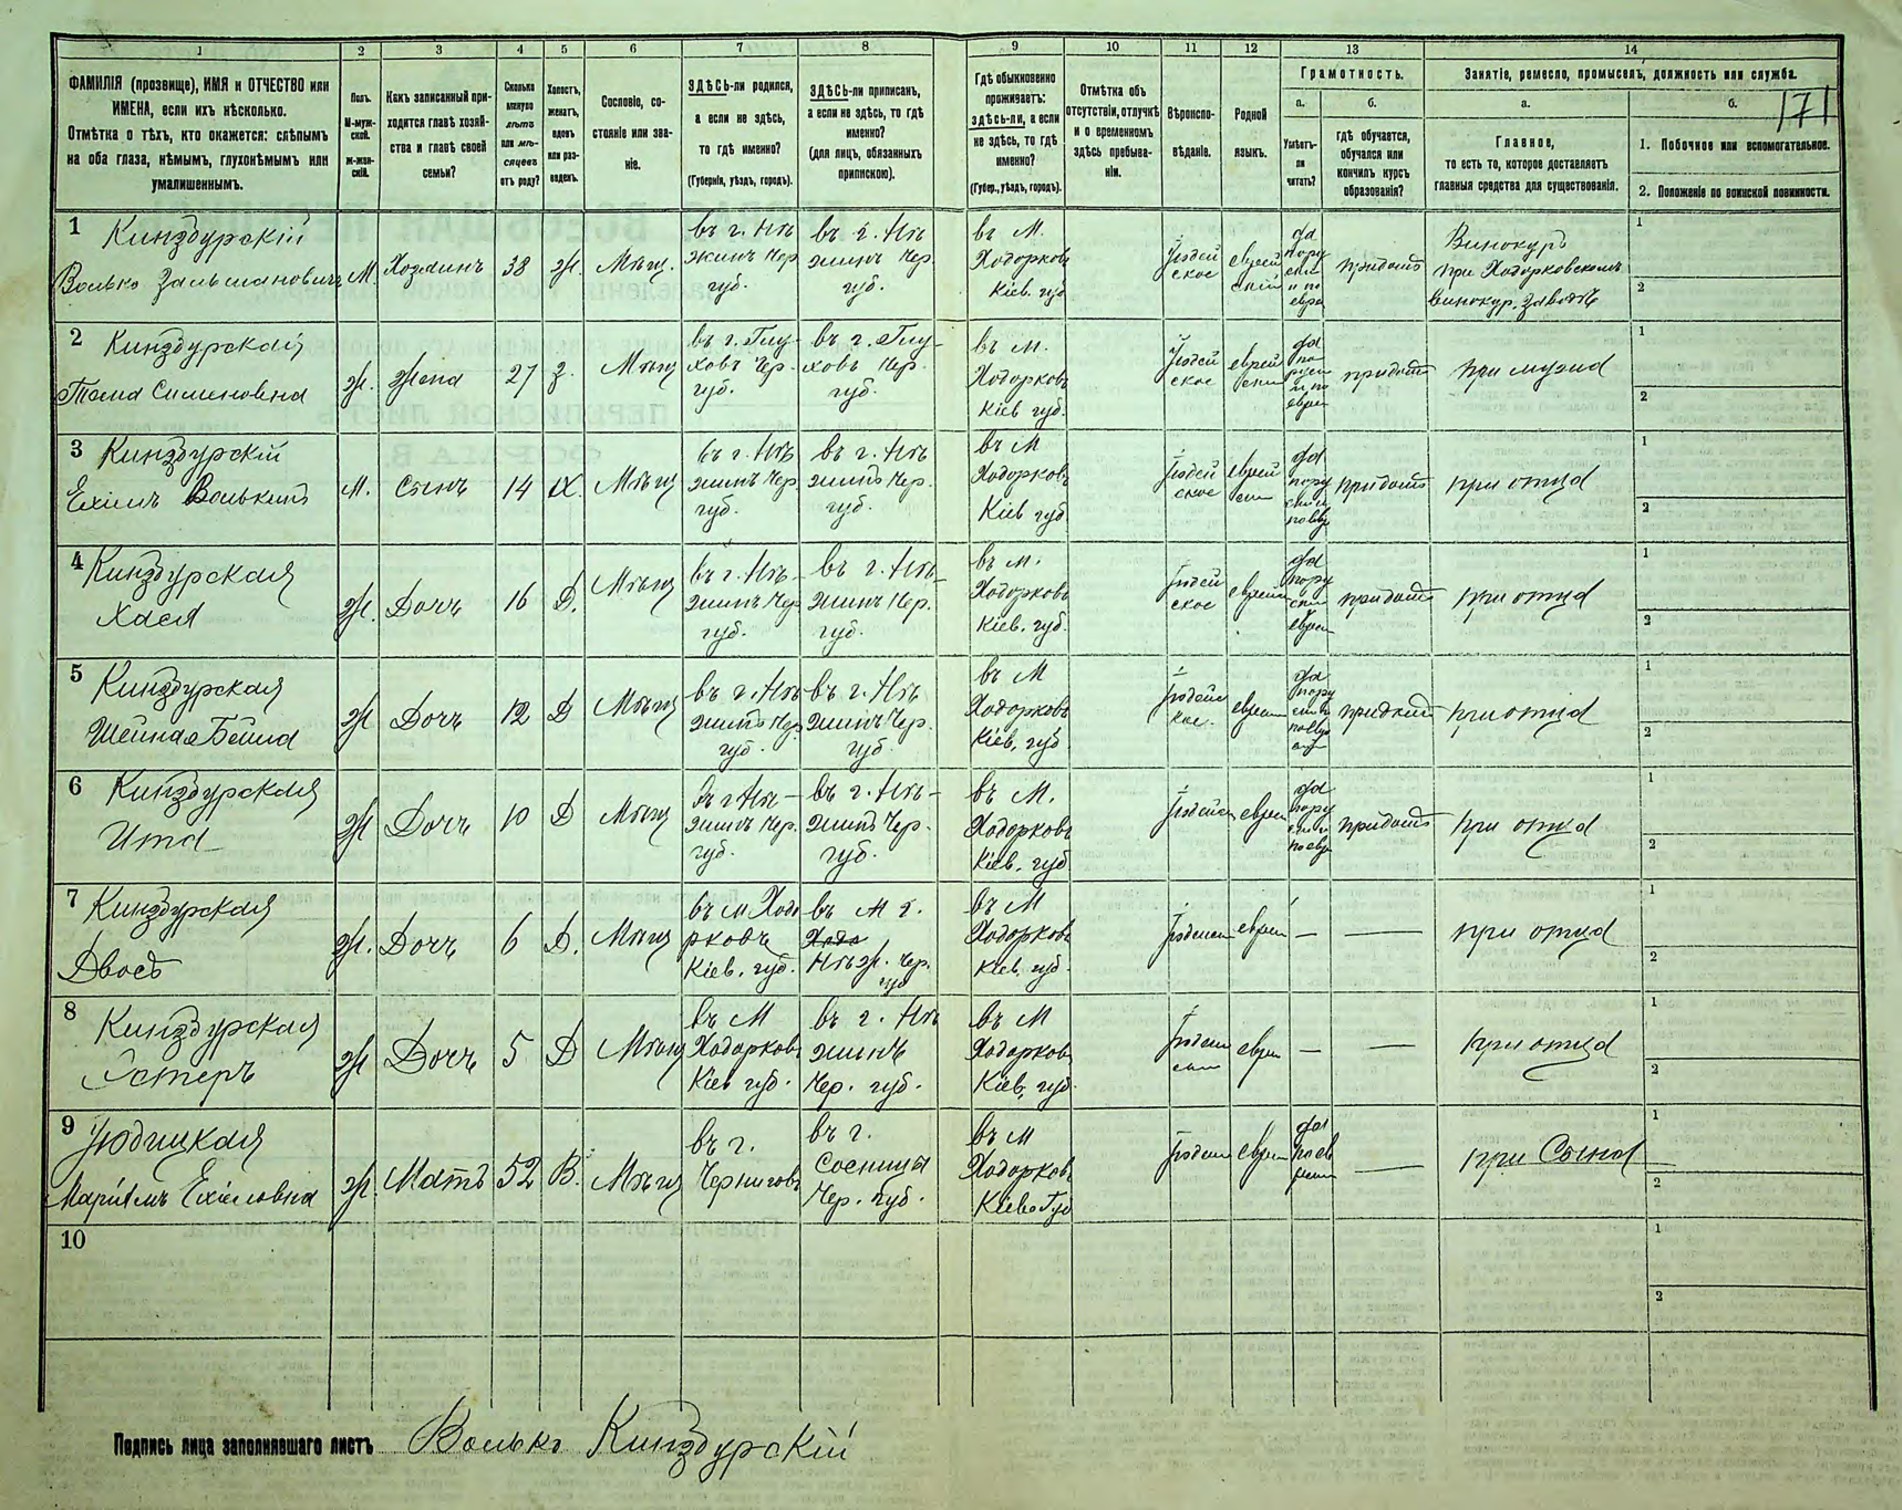 1 2 3 4 5 6 7 8 9 10 11 12 13 14
ФАМИЛІЯ (прозвище), ИМЯ и ОТЧЕСТВО или
ИМЕНА, если ихъ нѣсколько.
Отмѣтка о тѣхъ, кто окажется: слѣпымъ
на оба глаза, нѣмымъ, глухонѣмымъ или
умалишеннымъ.
Полъ.
М-муж-
ской.
ж-жен-
скій.
Какъ записанный при-
ходится главѣ хозяй-
ства и главѣ своей
семьи?
Сколько
минуло
лѣтъ
или мѣ-
сяцевъ
отъ роду?
Холостъ,
женатъ,
вдовъ
или раз-
веденъ.
Сословіе, со-
стояніе или зва-
ніе.
ЗДѢСЬ-ли родился,
а если не здѣсь,
то гдѣ именно?
(Губернія, уѣздъ, городъ).
ЗДѢСЬ-ли приписанъ,
а если не здѣсь, то гдѣ
именно?
(для лицъ, обязанныхъ
припискою).
Гдѣ обыкновенно
проживаетъ:
здѣсь-ли, а если
не здѣсь, то гдѣ
именно?
(Губер., уѣздъ, городъ).
Отмѣтка объ
отсутствіи, отлучкѣ
и о временномъ
здѣсь пребыва-
ніи.
Вѣроиспо-
вѣданіе.
Родной
языкъ.
Грамотность.
а.
Умѣетъ-
ли
читать?
б.
гдѣ обучается,
обучался или
кончилъ курсъ
образованія?
Занятіе, ремесло, промыселъ, должность или служба.
а.
Главное,
то есть то, которое доставляетъ
главныя средства для существованія.
б.
171
1. Побочное или вспомогательное.
2. Положеніе по воинской повинности.
1 Кинзбурскій
Волько Зальмановичъ
М. Хозяинъ 38 ж. Мѣщ.
въ г. Нѣ
жинъ Чер
губ.
въ г. Нѣ
жинъ Чер.
губ.
въ М.
Ходорковъ
Кіев. губ
Іюдей
ское
еврей
скій
да
пору
ски
и по
евре
Винокуръ
при Ходорковскомъ
винокур. заводѣ
1
2
2 Кинзбурская
Симоновна
ж. жена 27 з. Мѣщ
въ г. Глу-
ховъ Чер.
губ.
въ г. Глу-
ховъ Чер.
губ.
въ м.
Ходорковъ
Кіев губ.
Іюдей
ское
еврей
ски
да
по
руск
и по
евреи
при мужа
1
2
3 Кинзбурскій
Ехіилъ Волькинъ
М. Сынъ 14 Х. Мѣщ
въ г. Нѣ
жинъ Чер.
губ.
въ г. Нѣ
жинъ Чер.
губ.
въ М
Ходорковъ
Кіев губ
Іюдей
ское
еврей
ски
да
пору
при отца
1
2
4 Кинзбурская
Хася
ж. Дочь 16 Д. Мѣщ
въ г. Нѣ-
жинъ Чер
губ.
въ г. Нѣ-
жинъ Чер.
губ.
въ м.
Ходорковъ
Кіев. губ.
Іюдей
ское
да
пору
ски
евреи
при отца
1
2
5 Кинзбурская
Шейная Бейла
ж Дочь 12 Д Мѣщ
въ г. Нѣ
жинъ Чер
губ.
въ г. Нѣ
жинъ Чер.
губ
въ М
Ходорковъ
Кіев. губ
да
пору
при отца
1
2
6 Кинзбурская
Ита
ж Дочь 10 Д Мѣщ
въ г Нѣ-
жинъ Чер.
губ.
въ г. Нѣ-
жинъ Чер.
губ.
въ М.
Ходорковъ
Кіев. губ
да
пору
при отца
1
2
7 Кинзбурская
Двося
ж. Дочь 6 Д. Мѣщ
въ м Ходо
рковъ
Кіев. губ.
въ М г.
Ходо
Нѣж. Чер.
губ
въ М
Ходорковъ
Кіев. губ.
— —
при отца
1
2
8 Кинзбурская
Эстеръ
ж Дочь 5 Д Мѣщ
въ М
Ходорковъ
Кіев губ.
въ г. Нѣ
жинъ
Чер. губ.
въ М
Ходорковъ
Кіев. губ.
— —
при отца
1
2
9 Іюдицкая
Маріямъ Ехіиловна
ж. Мать 52 В. Мѣщ
въ г.
Черниговъ
въ г.
Сосницы
Чер. губ.
въ М
Ходорковъ
Кіевс Губ
да
по ев
реи
—
при Сына
1
2
10
1
2
Подпись лица заполнявшаго листъ Волько Кинзбурскій